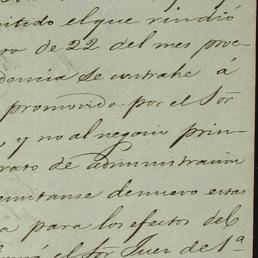 mitido el que rindió
ro de 22 del mes proc
dencia se contrahe á
promovido por el Sor
, y no al negocio prin-
rato de administracion
remitanse de nuevo estas
a para los efectos del
el Sor Juez de 1ª